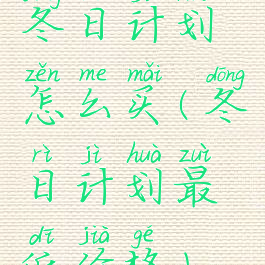 冬日计划
zěn me mǎi dōng
怎么买(冬
rì jì huà zuì
日计划最
dī jià gé
低价格)